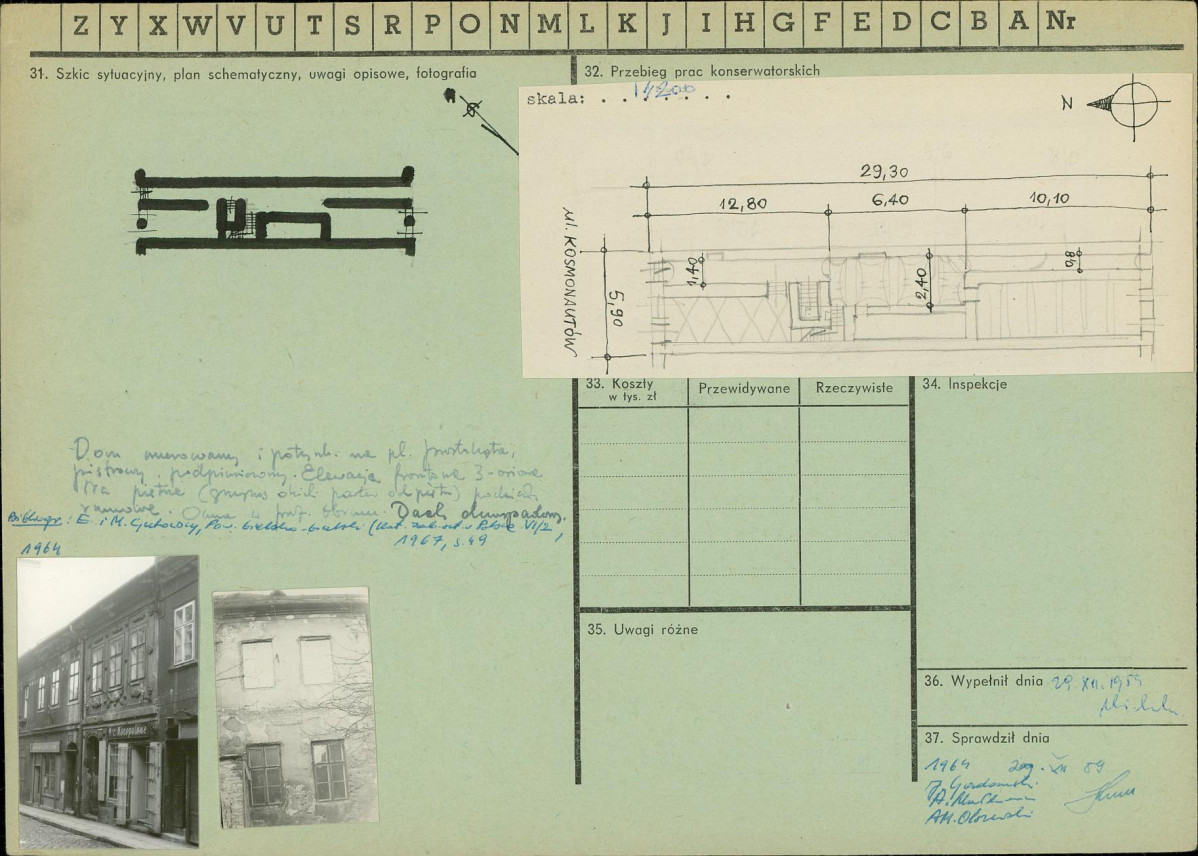 Z Y X W V U T S R P O N M L K J I H G F E D C B A Nr
31. Szkic sytuacyjny, plan schematyczny, uwagi opisowe, fotografia
32. Przebieg prac konserwatorskich
skala: . . . . . . .
1:200
N
29,30
12,80 6,40 10,10
ul. KOSMONAUTÓW
5,90
1,40
2,40
0,8
33. Koszty
w tys. zł
Przewidywane
Rzeczywiste
34. Inspekcje
Dom murowany i potynk. na pl. prostokąta,
piętrowy, podpiwniczony. Elewacja frontowa 3-osiowa
na piętrze
ramowe. Okna w prof. obram. Dach dwuspadowy.
Bibliogr: E. i M. Gutowscy, Pow. bielsko-bialski (Kat. zab. szt. w Polsce VI/2,
1967, s. 49
1964
35. Uwagi różne
36. Wypełnił dnia 29 XII. 1959
37. Sprawdził dnia
1964
XII 59
AM. Olszewski